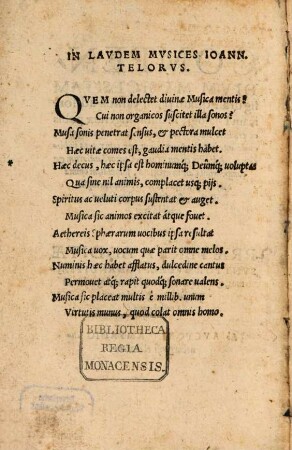 IN LAVDEM MVSICES IOANN.
TELORVS.
QVEM non delectet diuinæ Musica mentis?
Cui non organicos suscitet illa sonos?
Musa sonis penetrat sensus, & pectora mulcet
Hæc uitæ comes est, gaudia mentis habet.
Hæc decus, hæc ipsa est hominumq́; Deûmq́; uoluptas
Qua sine nil animis, complacet usq; pijs.
Spiritus ac ueluti corpus sustentat & auget.
Musica sic animos excitat átque fouet.
Aethereis sphærarum uocibus ipsa resultat
Musica uox, uocum quæ parit omne melos.
Numinis hæc habet afflatus, dulcedine cantus
Permouet atq́; rapit quodq́; sonare ualens.
Musica sic placeat multis è millib. unum
Virtutis munus, quod colat omnis homo.
BIBLIOTHECA
REGIA
MONACENSIS.